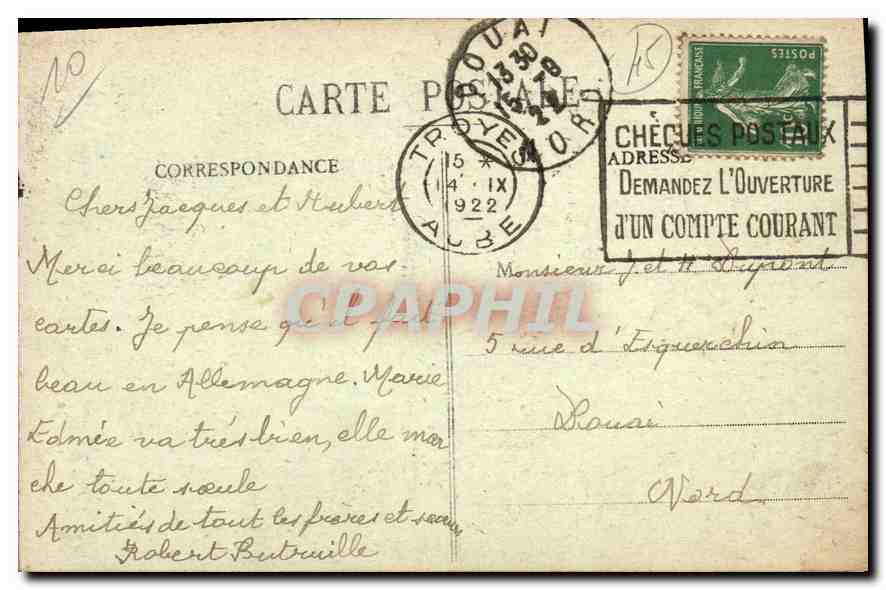 10
45
DOUAI
13 30
15-9
22
NORD
POSTES
CARTE POSTALE
TROYES
15 *
14 · IX
1922
AUBE
CHÈQUES POSTAUX
DEMANDEZ L'OUVERTURE
d'UN COMPTE COURANT
CORRESPONDANCE
ADRESSE
Chers Jacques et Hubert
Merci beaucoup de vos
cartes. Je pense qu'il fait
beau en Allemagne. Marie
Edmée va très bien, elle mar
che toute seule
Amitiés de tout les frères et sœurs
Robert Butruille
Monsieur J. et H. Dupont
5 rue d'Esquerchin
Douai
Nord
CPAPHIL